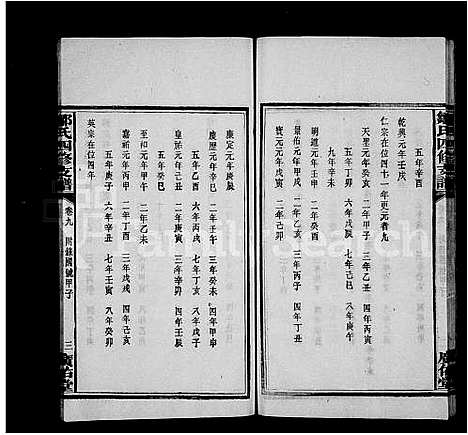 五年辛酉
乾興元年壬戌
仁宗在位四十一年更元者九
天聖元年癸亥 二年甲子 三年乙丑 四年丙寅
五年丁卯 六年戊辰 七年己巳 八年庚午
九年辛未
明道元年壬申 二年癸酉
景佑元年甲戌 二年乙亥 三年丙子 四年丁丑
寶元元年戊寅 二年己卯
廣佑堂
康定元年庚辰
慶歷元年辛巳 二年壬午 三年癸未 四年甲申
五年乙酉 六年丙戌 七年丁亥 八年戊子
皇祐元年己丑 二年庚寅 三年辛卯 四年壬辰
五年癸巳
至和元年甲午 二年乙未
嘉祐元年丙申 二年丁酉 三年戊戌 四年己亥
五年庚子 六年辛丑 七年壬寅 八年癸卯
英宗在位四年
鄒氏四修支譜
卷九
附錄國號甲子
三
廣佑堂